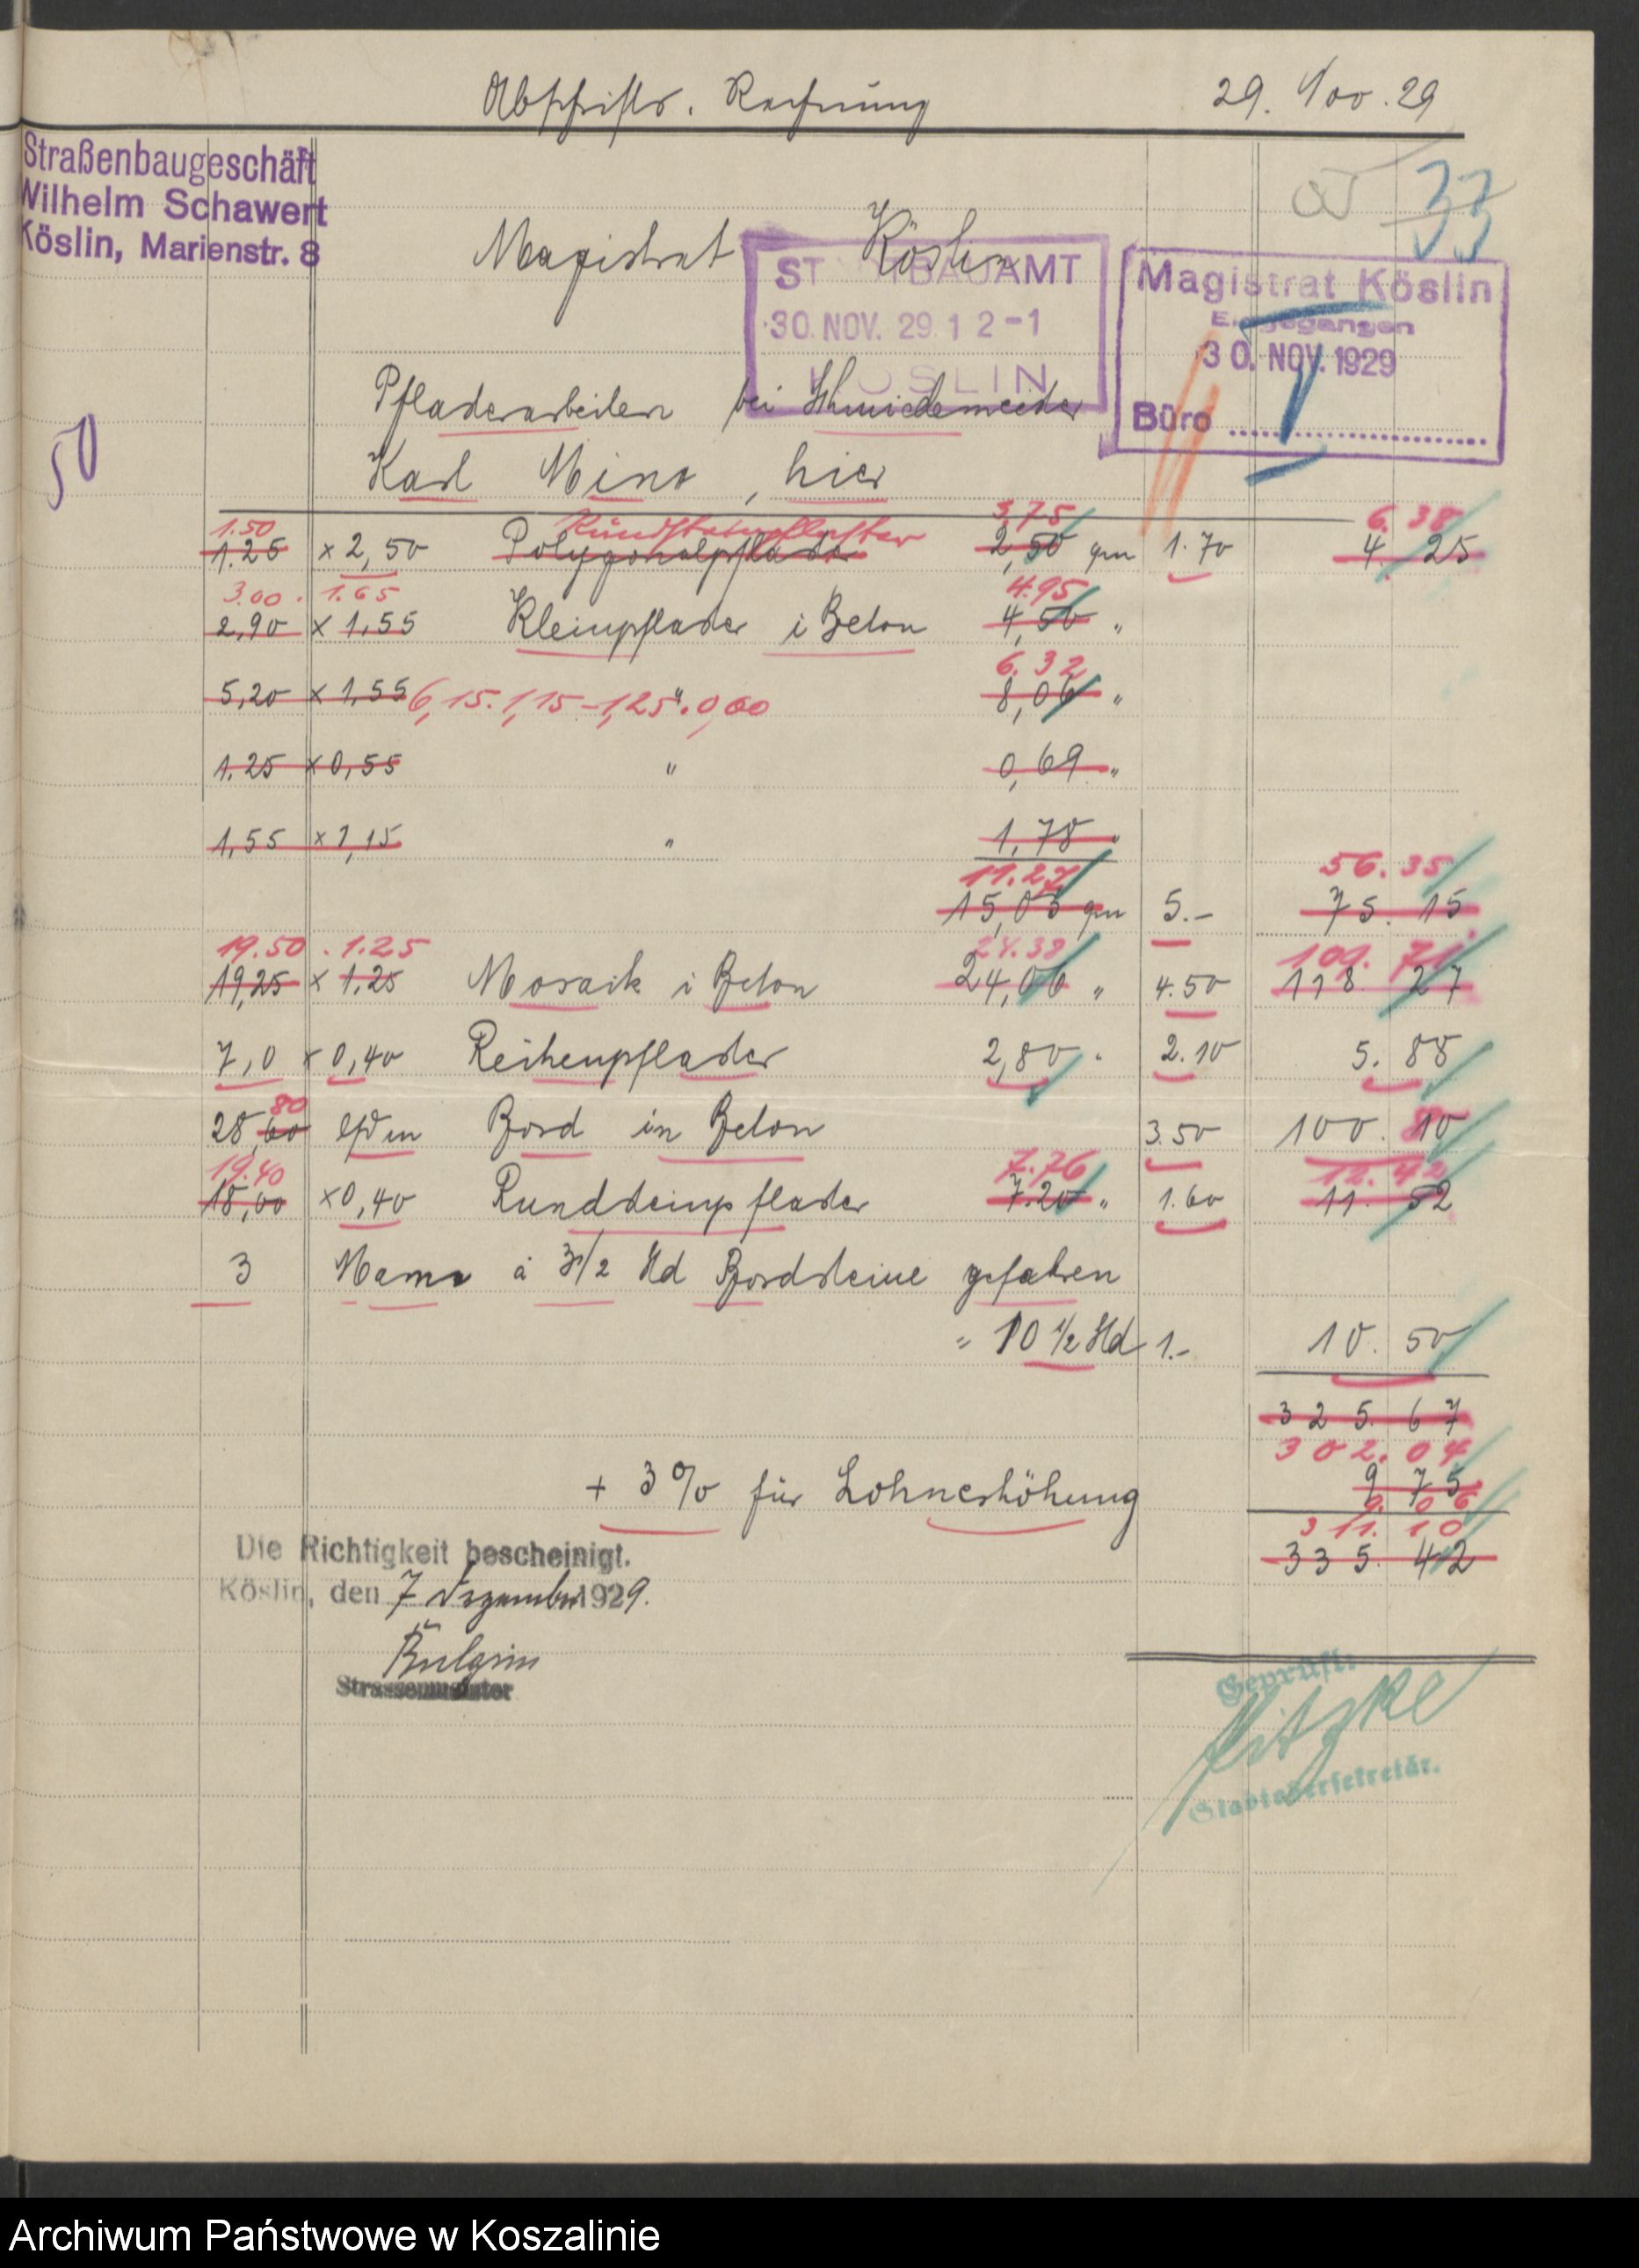 Abschrifts. Rechnung 29. Nov. 29
Straßenbaugeschäft
Wilhelm Schawert
Köslin, Marienstr. 8
33
Magistrat Köslin
STADTBAUAMT
30. NOV. 29. 1 2-1
KÖSLIN
Magistrat Köslin
Eingegangen
30. NOV. 1929
Büro
Pflasterarbeiten bei Schmiedemeister
50
Karl Minx, hier
1.50 Rundsteinpflaster 3,75 6.38
1.25 x 2,50 Polygonalpflaster 2,50 qm 1.70 4.25
3.00 . 1.65 4.95
2,90 x 1,55 Kleinpflaster i Beton 4,50 "
6.32
5,20 x 1,55 6,15.1,15-1,25.0,60 " 8,06 "
1.25 x 0,55 " 0,69 "
1,55 x 1,15 " 1,78 "
11.27 56.35
15,03 qm 5.- 75.15
19.50 . 1.25 24.38 109.71
19,25 x 1,25 Mosaik i Beton 24,06 " 4.50 118.27
7,0 x 0,40 Reihenpflaster 2,80 " 2.10 5.88
80
28,60 lfdm Bord in Beton 3.50 100.80
19.40 7.76 12.42
18,00 x 0,40 Rundsteinpflaster 7.20 " 1.60 11.52
3 Mann à 3 1/2 Std Bordsteine gefahren
= 10 1/2 Std 1.- 10.50
325.67
302.04
+ 3% für Lohnerhöhung 9 75
9.06
311.10
335.42
Die Richtigkeit bescheinigt.
Köslin, den 7 Dezember 1929.
Bülgrin
Strassenmeister
Geprüft:
Stadtobersekretär.
Archiwum Państwowe w Koszalinie